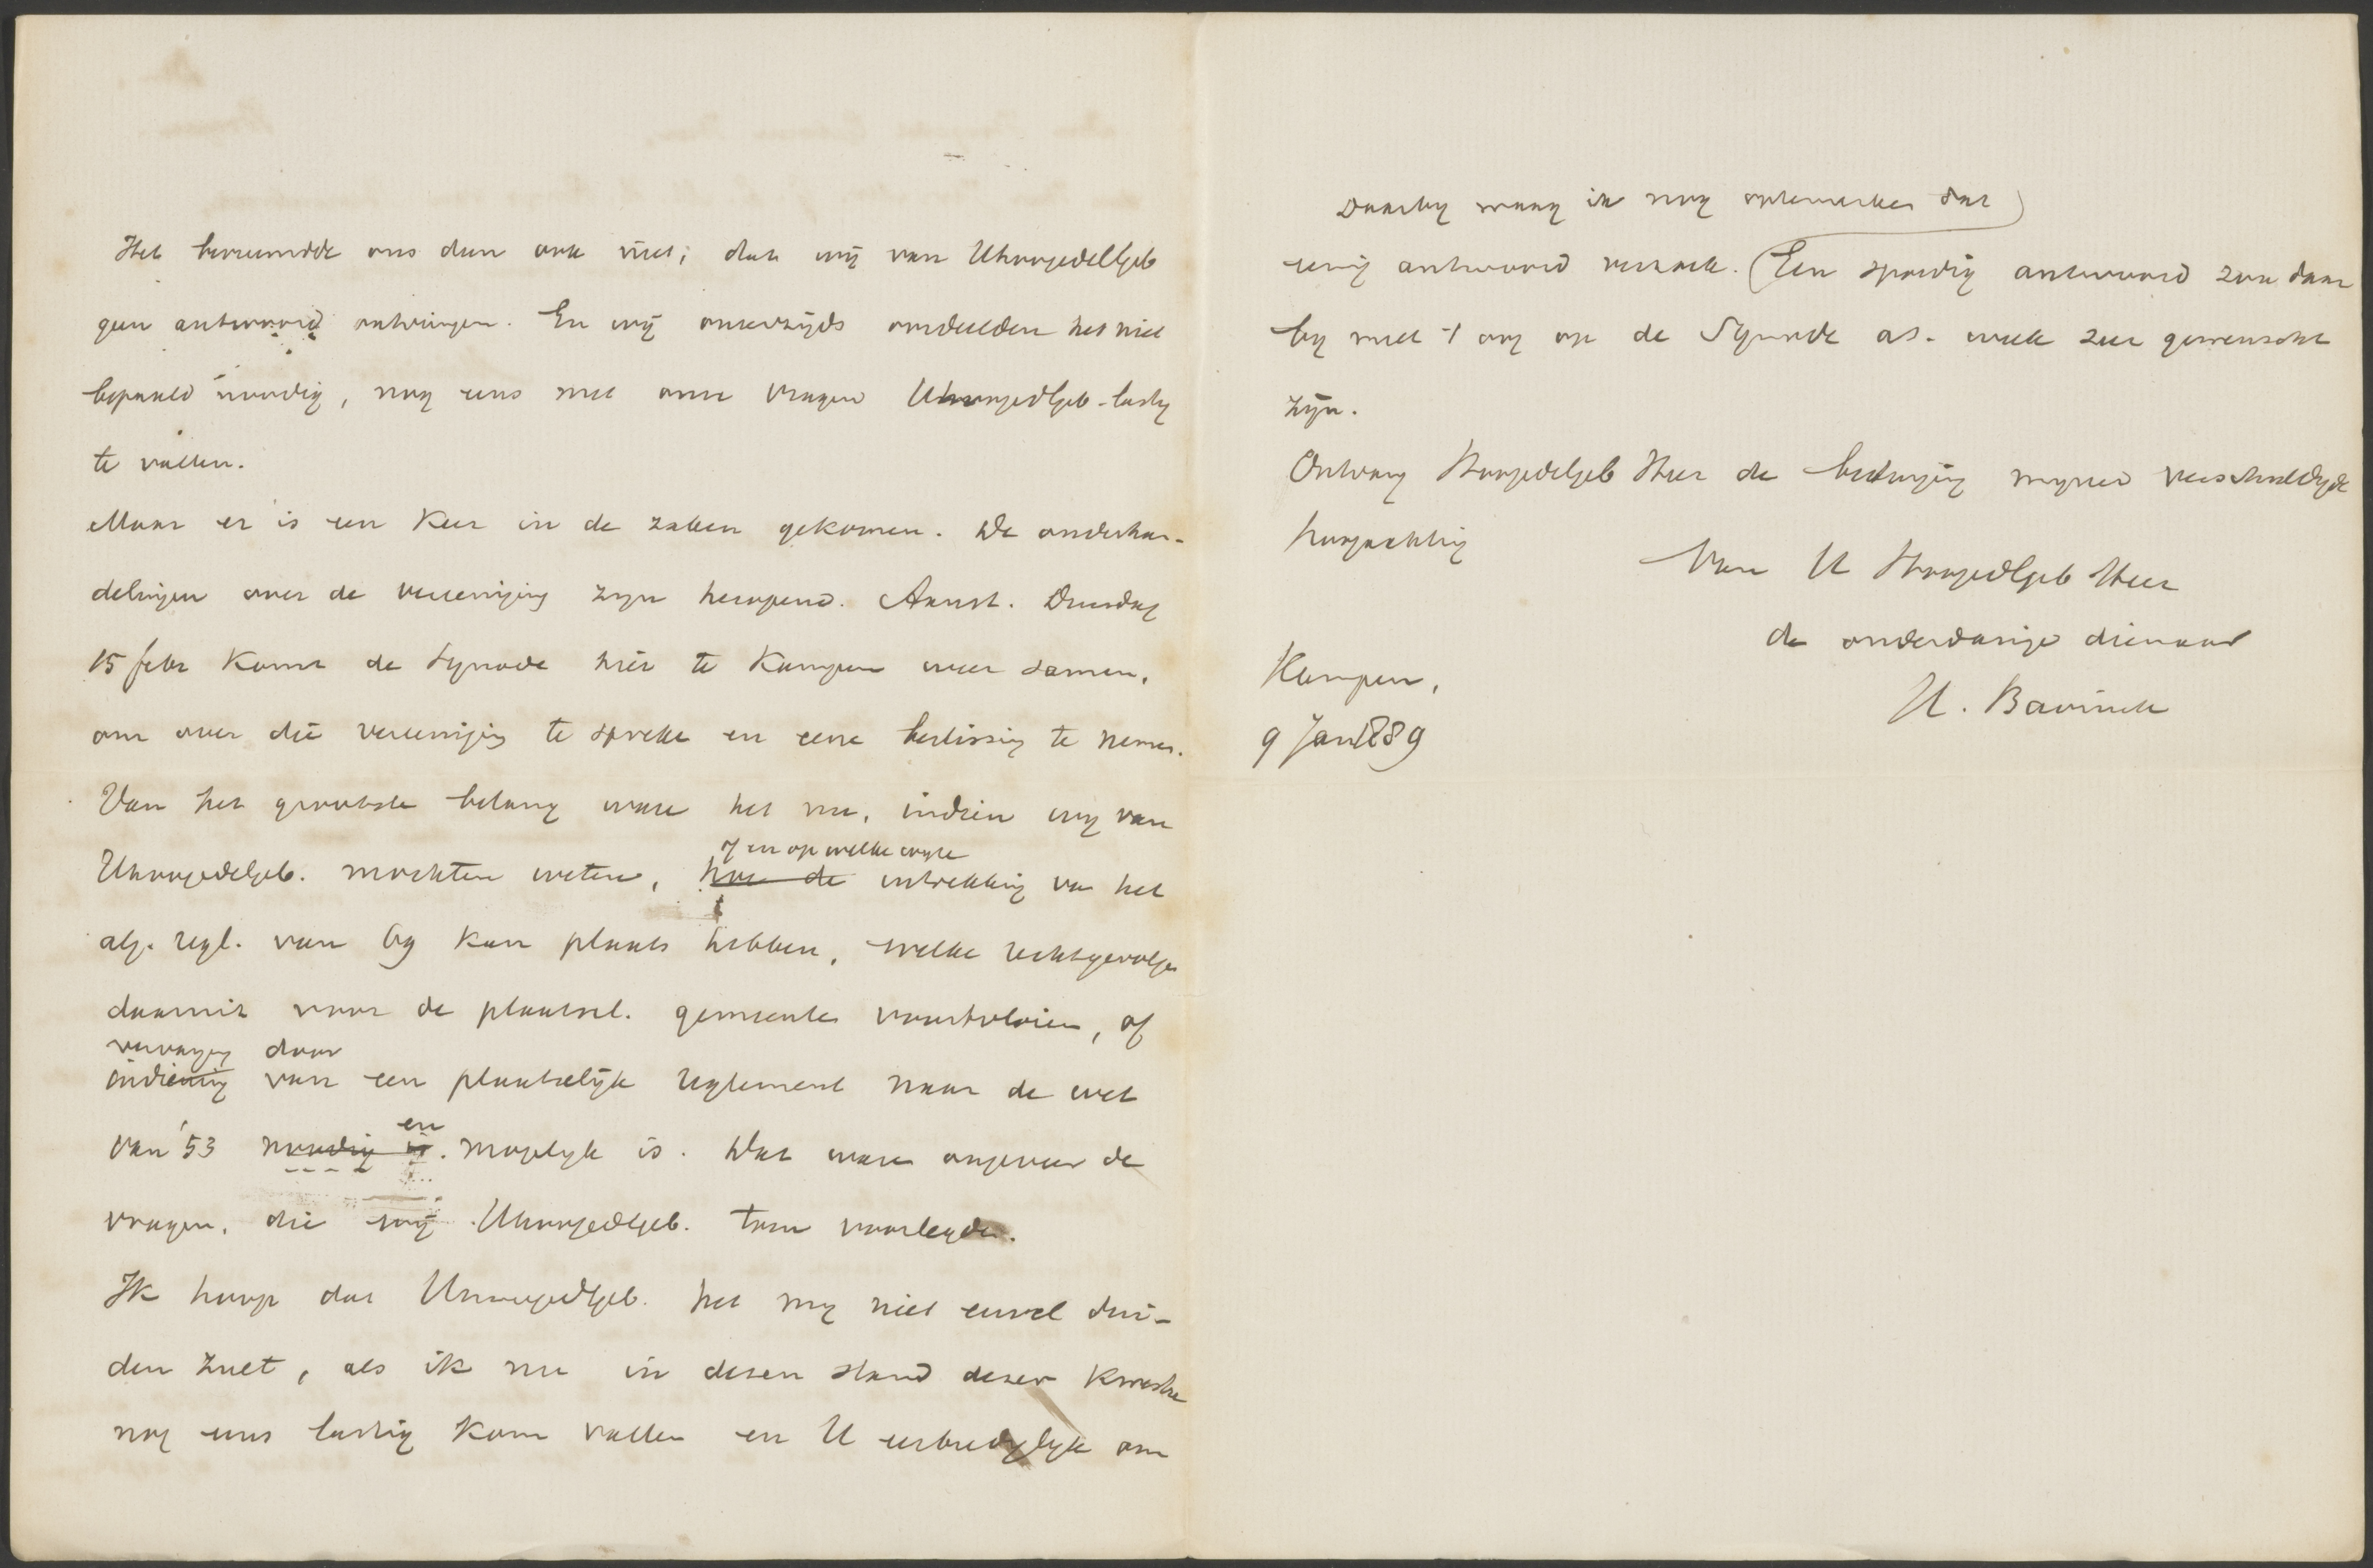 Het bevreemdde ons dan ook niet, dat wij van UHoogedelGeb
geen antwoord ontvingen. En wij onzerzijds oordeelden het niet
bepaald noodig, nog eens met onze vragen UHoogedlGeb. lastig
te vallen.
Maar er is een keer in de zaken gekomen. De onderhan-
delingen over de vereeniging zijn heropend. Aanst. Dinsdag
15 febr komt de Synode hier te Kampen weer samen,
om over die vereeniging te spreken en eene beslissing te nemen.
Van het grootste belang ware het nu, indien wij van
of en op welke wijze
UHoogedelgeb. mochten weten, hoe de intrekking van het
alg. regl. van 69 kan plaats hebben, welke rechtsgevolgen
daaruit voor de plaatsel. gemeenten voortvloeien, of
vervanging door
indiening van een plaatselijk reglement naar de wet
en
van '53 noodig is. mogelijk is. Dat waren ongeveer de
vragen, die wij UHoogedlgeb. toen voorlegden.
Ik hoop dat UHoogedlgeb. het mij niet euvel dui-
den zult, als ik nu in dezen stand dezer kwestie
nog eens lastig kom vallen en U eerbiedigljk om
Daarbij waag ik nog opmerken dat
eenig antwoord verzoek. Een spoedig antwoord zou daar
bij met 't oog op de Synode a.s. week zeer gewenscht
zijn.
Ontvang Hoogedelgeb Heer de betuiging mijner verschuldigde
hoogachting
Van U Hoogedlgeb Heer
de onderdanige dienaar
H. Bavinck
Kampen,
9 Jan 1889